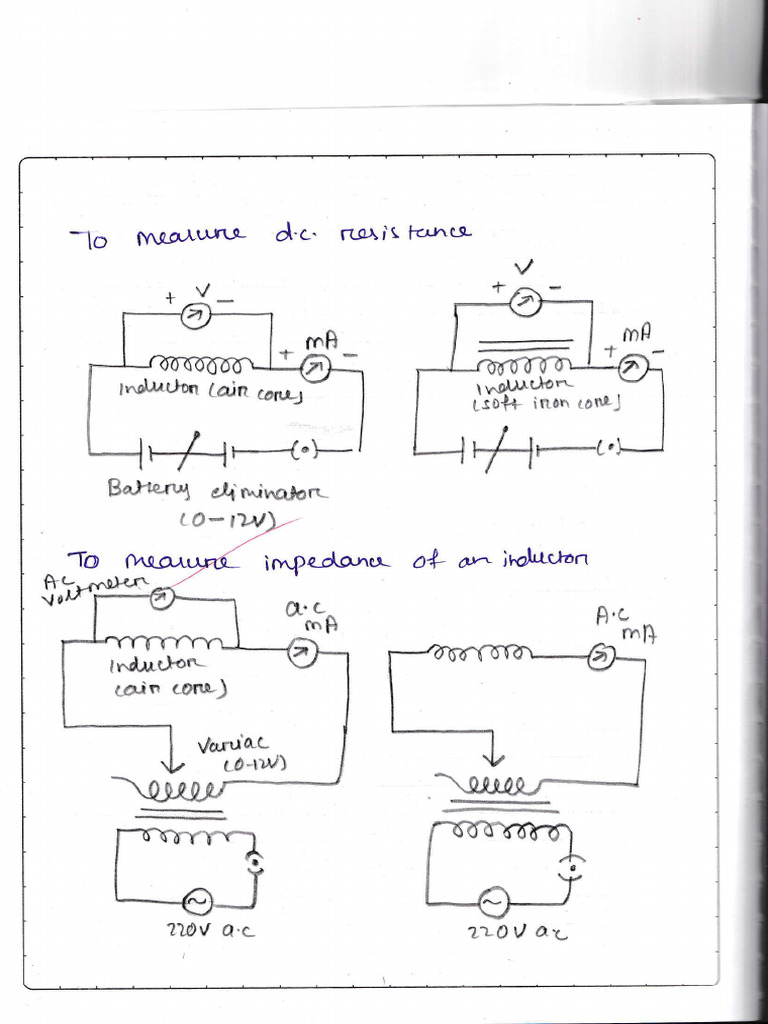 To measure d.c. resistance
+ V −
+ mA −
Inductor (air core)
Battery eliminator
(0-12V)
V
+ −
+ mA −
Inductor
(soft iron core)
To measure impedance of an inductor
AC
Voltmeter
a.c
mA
Inductor
(air core)
Variac
(0-12V)
220V a.c
A.C
mA
220V a.c